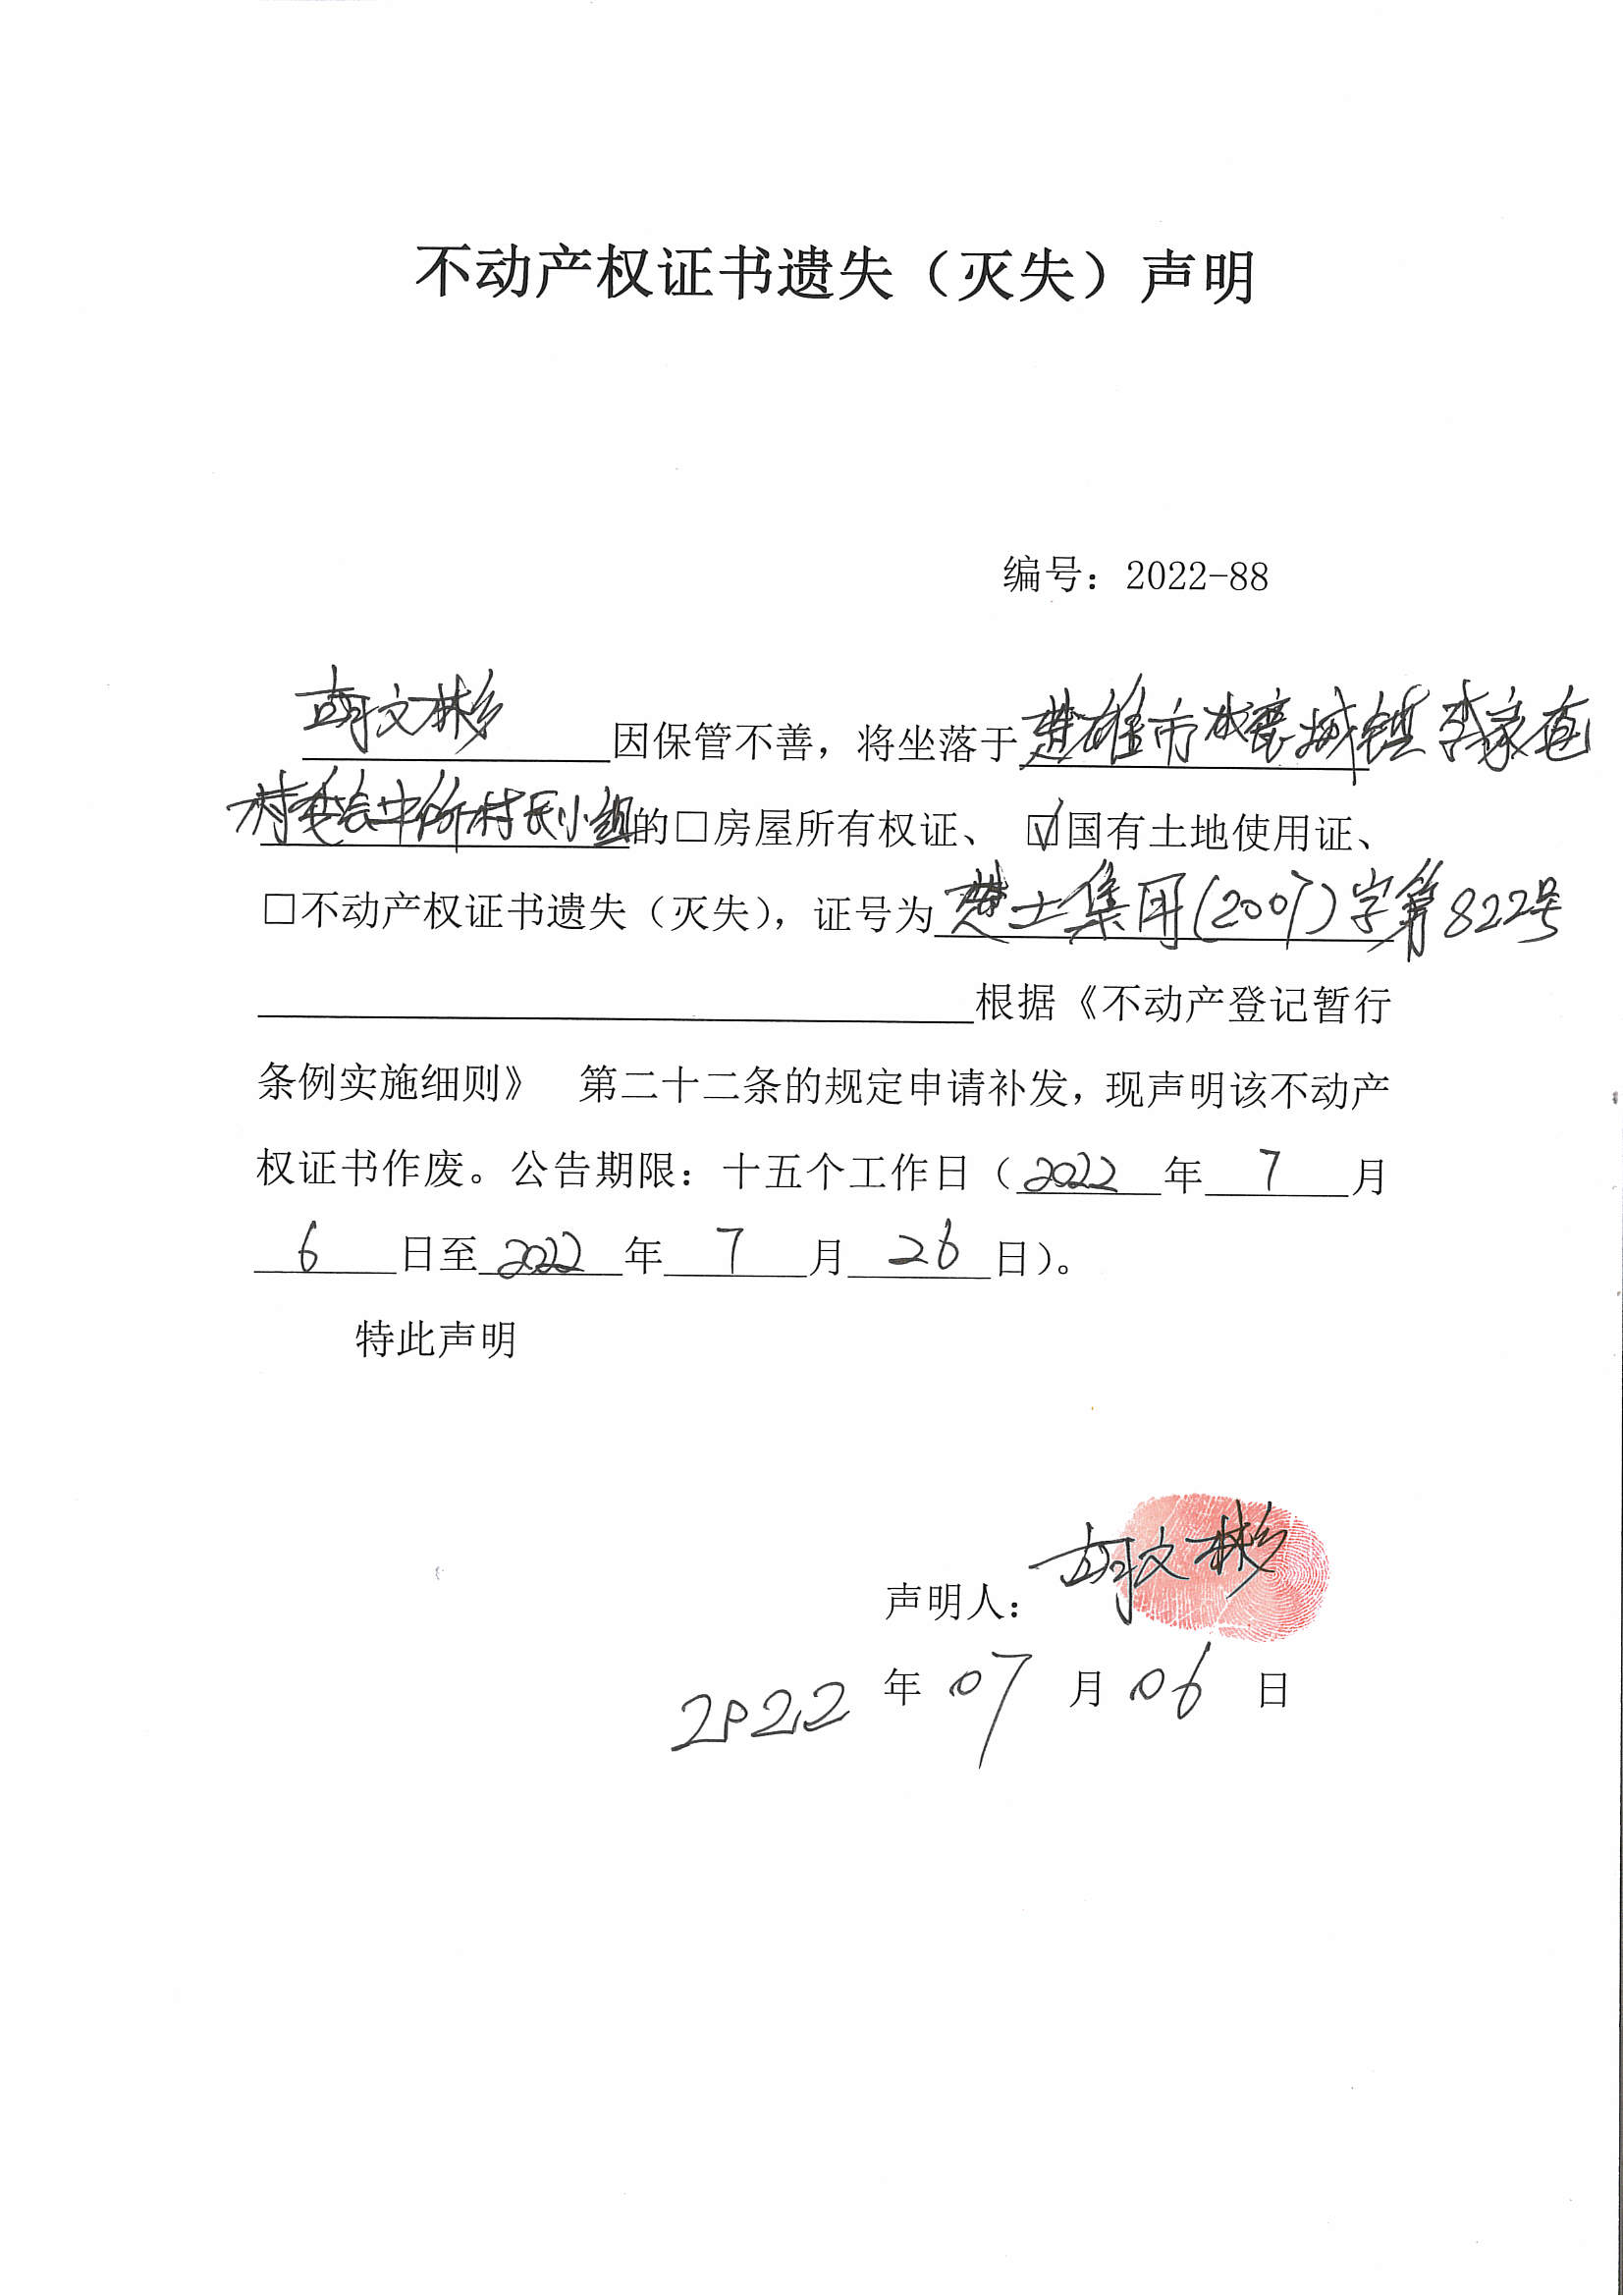 不动产权证书遗失（灭失）声明
编号：2022-88
胡文彬因保管不善，将坐落于楚雄市鹿城镇
村委会中所村民小组的□房屋所有权证、☑国有土地使用证、
□不动产权证书遗失（灭失），证号为楚土集用(2007)字第822号
根据《不动产登记暂行
条例实施细则》 第二十二条的规定申请补发，现声明该不动产
权证书作废。公告期限：十五个工作日（2022年7月
6日至2022年7月26日）。
特此声明
声明人：胡文彬
2022年07月06日